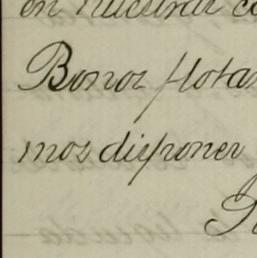 en nuestras c
Bonos flota
mos disponer